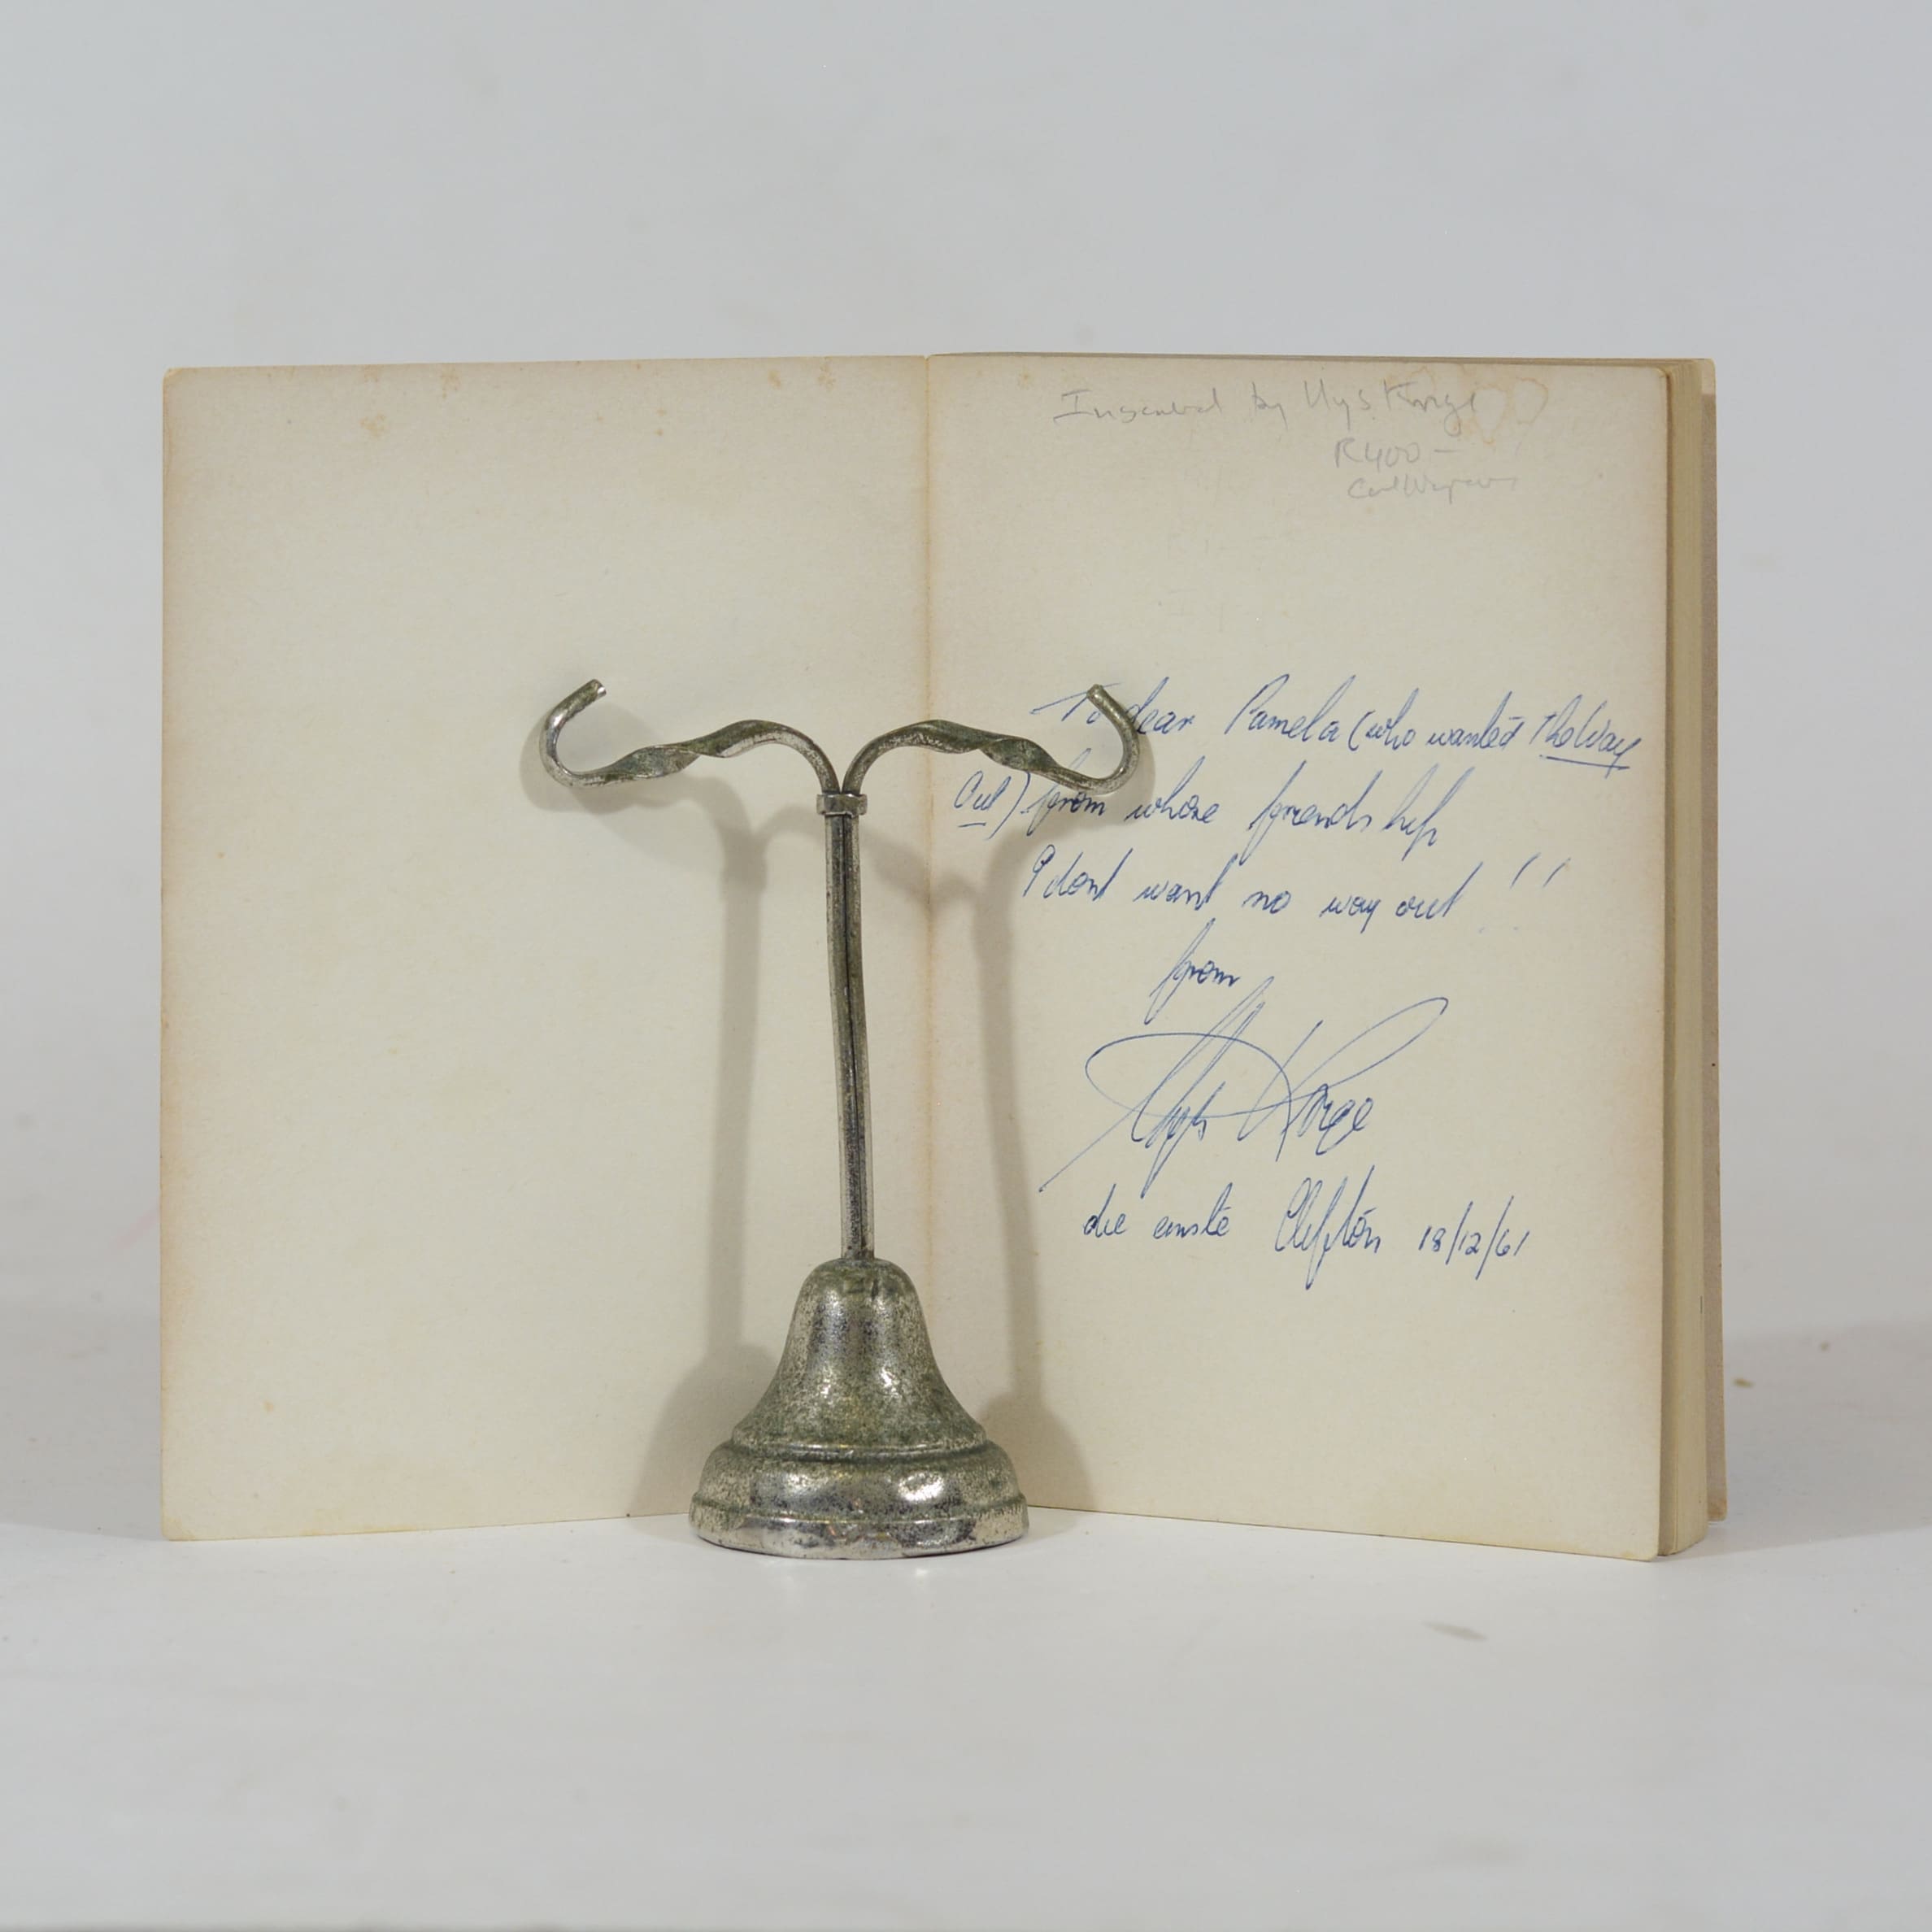 Inscribed by Uys Krige
R400-
To dear Pamela (who wanted The Way
Out) from whose friendship
I dont want no way out !!
from
Uys Krige
die eerste Clifton 18/12/61